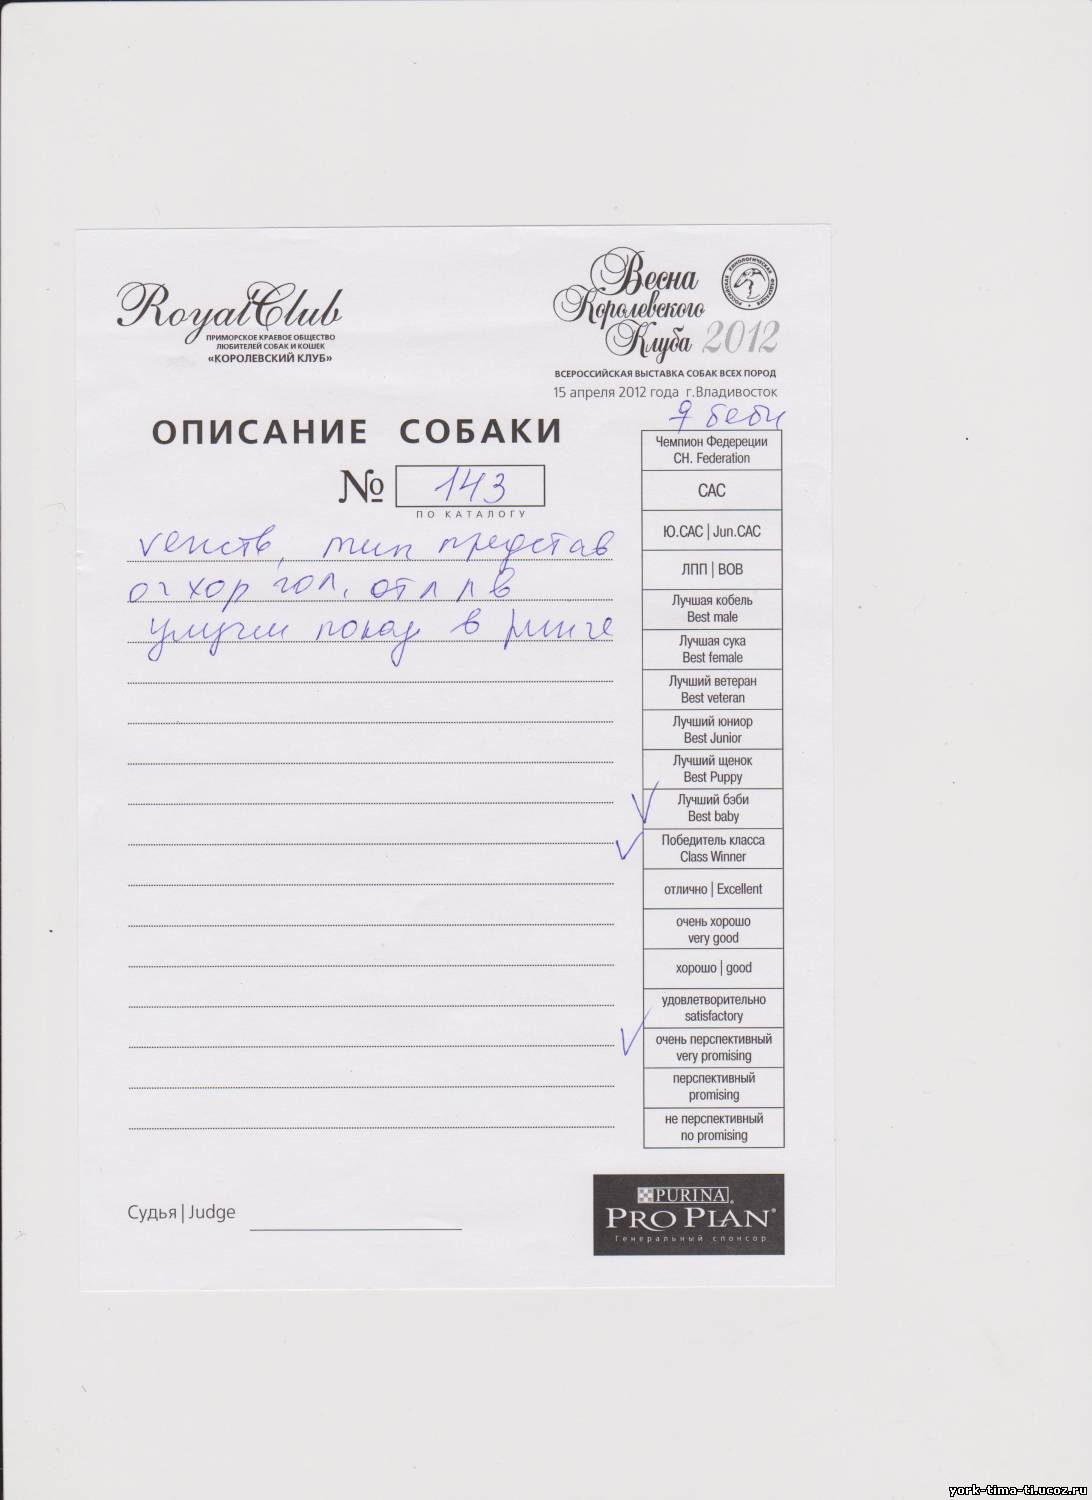 Royal Club
ПРИМОРСКОЕ КРАЕВОЕ ОБЩЕСТВО
ЛЮБИТЕЛЕЙ СОБАК И КОШЕК
«КОРОЛЕВСКИЙ КЛУБ»
Весна
Королевского
Клуба 2012
РОССИЙСКАЯ КИНОЛОГИЧЕСКАЯ ФЕДЕРАЦИЯ
ВСЕРОССИЙСКАЯ ВЫСТАВКА СОБАК ВСЕХ ПОРОД
15 апреля 2012 года г.Владивосток
♀ беби
ОПИСАНИЕ СОБАКИ
№ 143
ПО КАТАЛОГУ
тип представ
оч хор гол, отл л в
улучш показ в ринге
Чемпион Федереции
CH. Federation
CAC
Ю.САС | Jun.CAC
ЛПП | BOB
Лучшая кобель
Best male
Лучшая сука
Best female
Лучший ветеран
Best veteran
Лучший юниор
Best Junior
Лучший щенок
Best Puppy
Лучший бэби
Best baby
Победитель класса
Class Winner
отлично | Excellent
очень хорошо
very good
хорошо | good
удовлетворительно
satisfactory
очень перспективный
very promising
перспективный
promising
не перспективный
no promising
Судья | Judge
PURINA®
PRO PLAN®
Генеральный спонсор
york-tima-ti.ucoz.ru